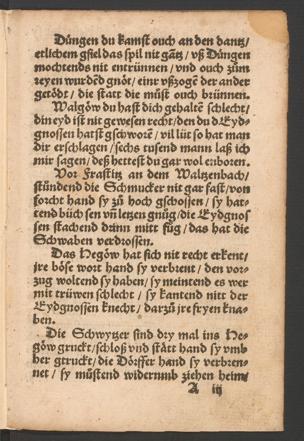 Düngen du kamst ouch an den dantz/
etlichem gfiel das spil nit gātz/ vß Düngen
mochtends nit entrünnen/ vnd ouch zům
reyen wurdēd gnöt/ einr vßzogē der ander
getödt/ die statt die můst ouch brünnen.
Walgöw du hast dich gehaltē schlecht/
din eyd ist nit gewesen recht/ den du d Eyd-
gnossen hatst gschworē/ vil lüt so hat man
dir erschlagen/ sechs tusend mann laß ich
mir sagen/ deß hettest du gar wol enboren.
Vor Frastitz an dem Waltzenbach/
stündend die Schmucker nit gar fast/ von
forcht hand sy zů hoch gschossen/ sy hat-
tend büchsen vñ letzen gnůg/ die Eydgnos
sen stachend drinn mitt fůg/ das hat die
Schwaben verdrossen.
Das Hegöw hat sich nit recht erkent/
jre böse wort hand sy verbrent/ den vor-
zug woltend sy haben/ sy meintend es wer
mit trüwen schlecht/ sy kantend nitt der
Eydgnossen knecht/ darzů jre fryen kna-
ben.
Die Schwytzer sind dry mal ins He-
göw gruckt/ schloß vnd stått hand sy vmb
her gtruckt/ die Dörffer hand sy verbren-
net/ sy můstend widerumb ziehen heim/
A iij